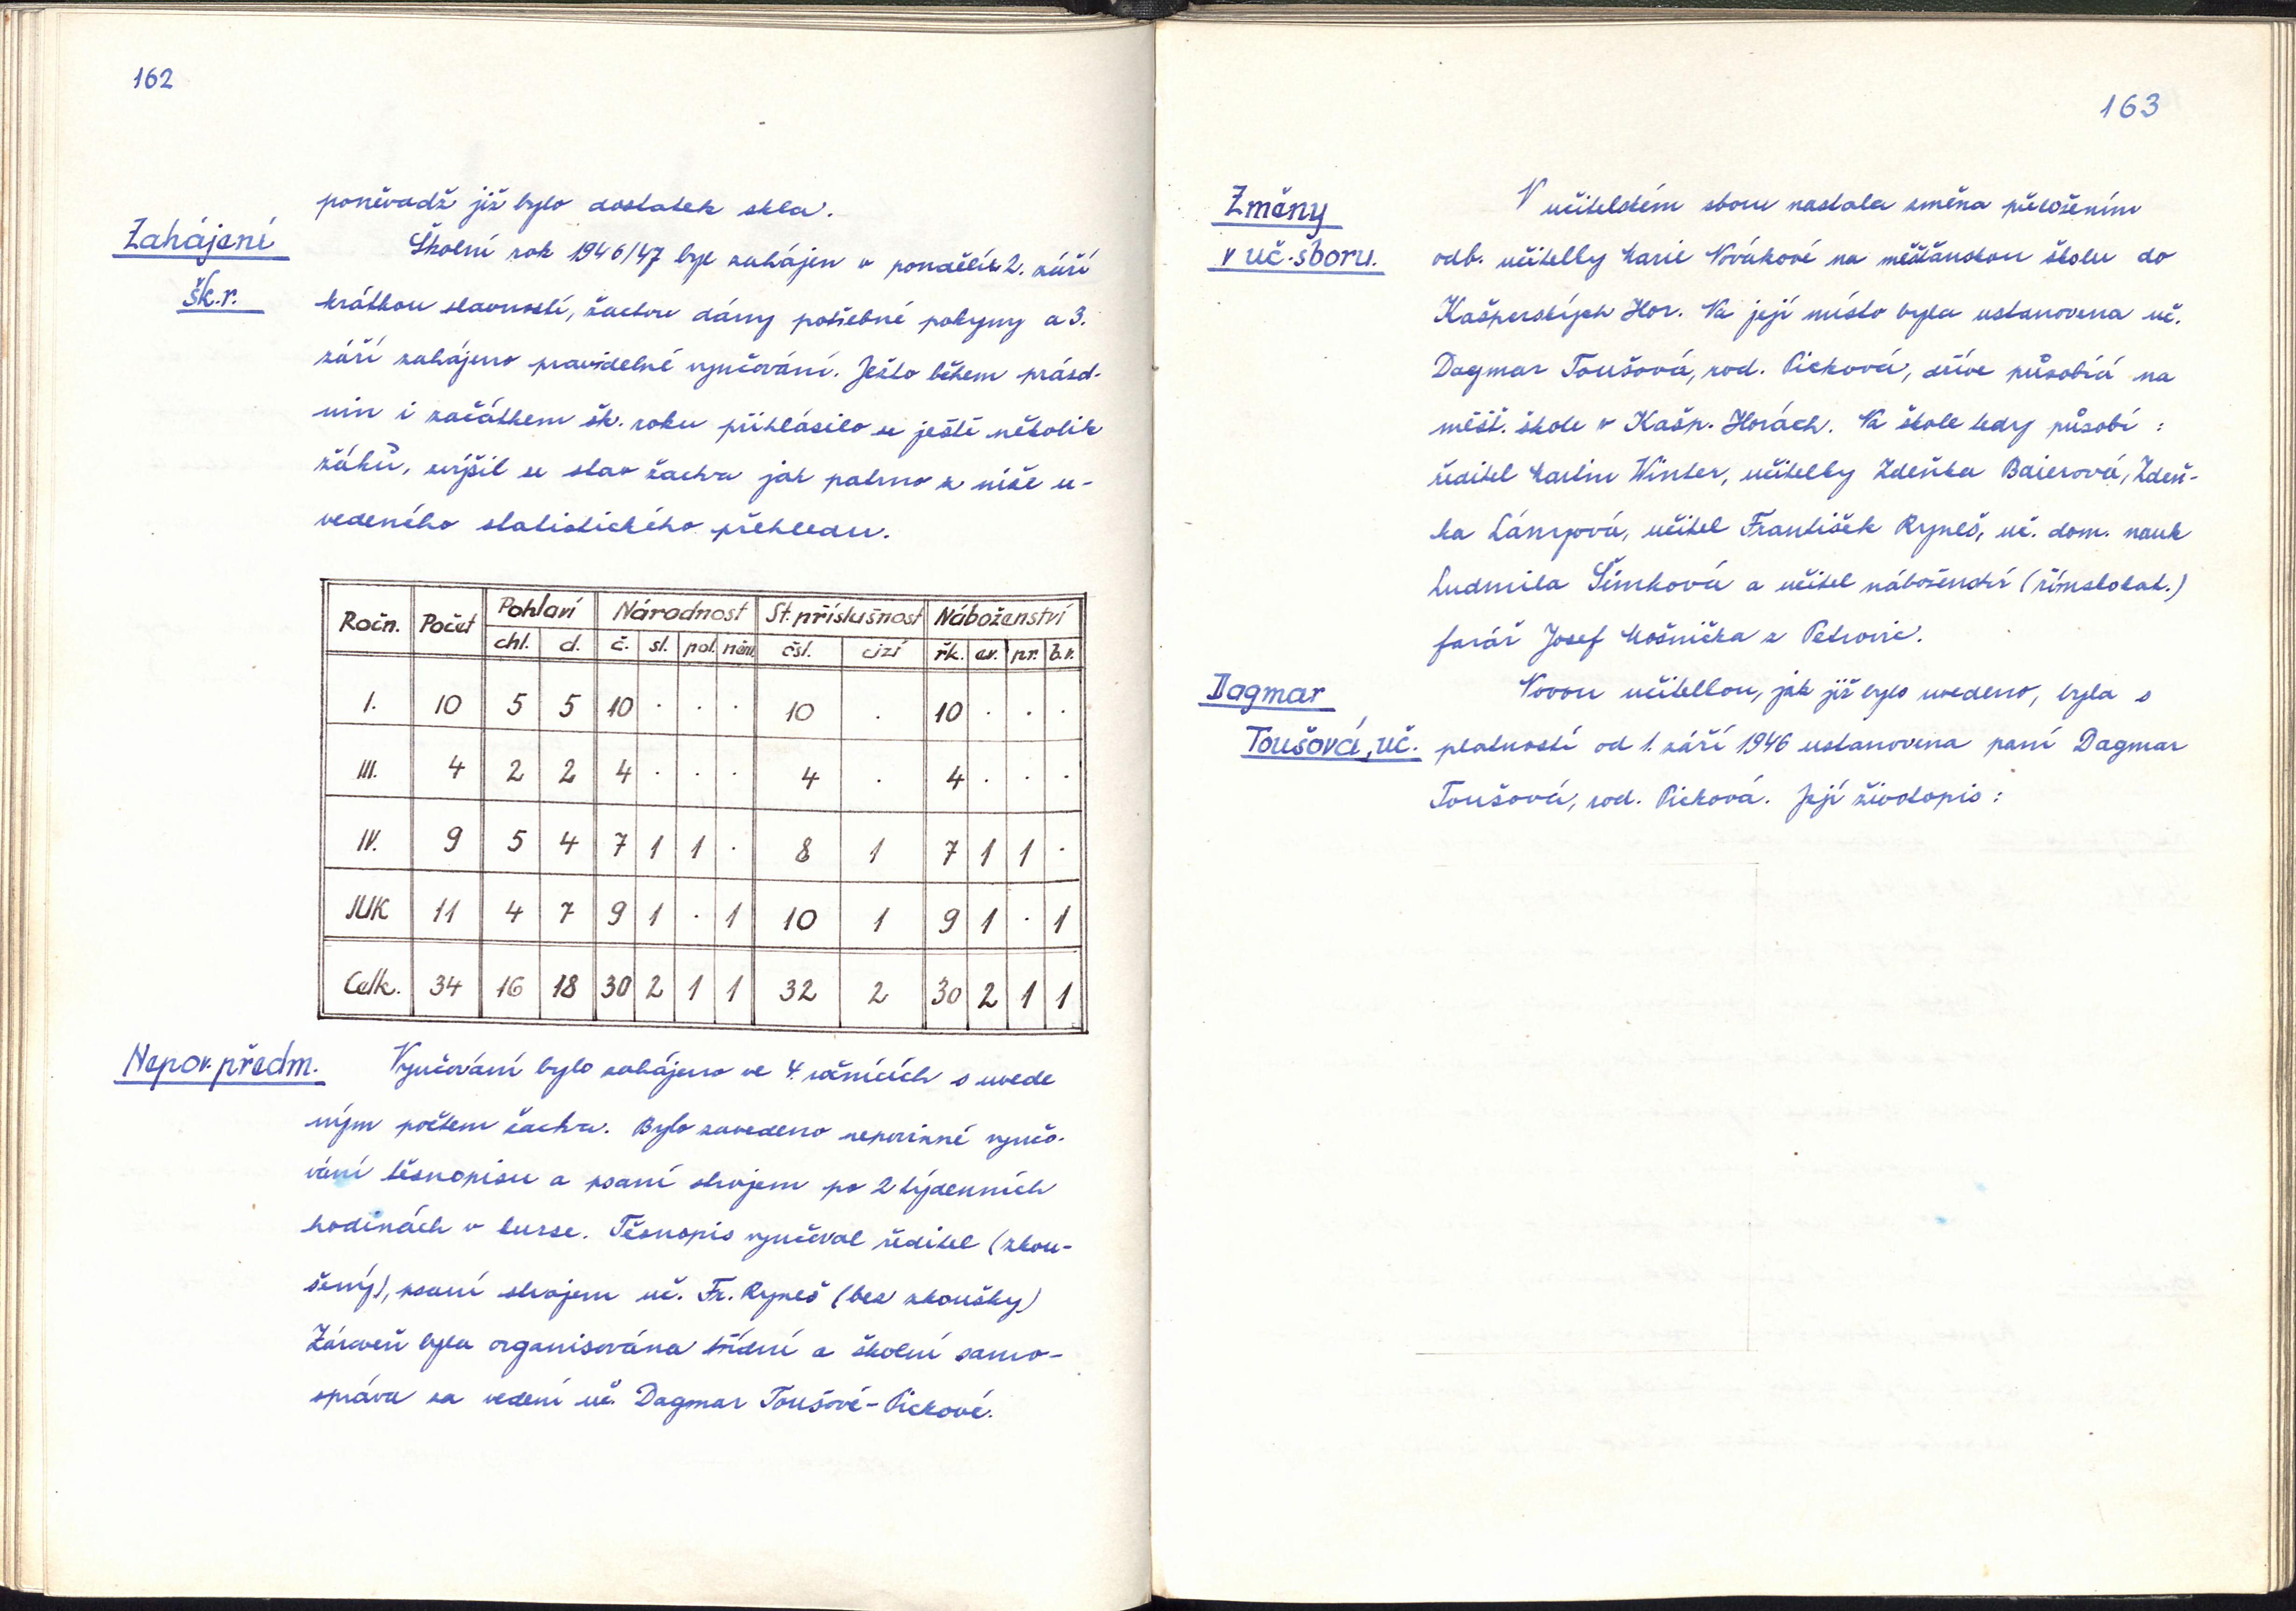 162
poněvadž již bylo dostatek skla.
Zahájení
šk.r.
Školní rok 1946/47 byl zahájen v pondělí 2. září
krátkou slavností, žactvu dány potřebné pokyny a 3.
září zahájeno pravidelné vyučování. Ješto během prázd-
nin i začátkem šk. roku přihlásilo se ještě několik
žáků, zvýšil se stav žactva jak patrno z níže u-
vedeného statistického přehledu.
Ročn. Počet Pohlaví Národnost St. příslušnost Náboženství
chl. d. č. sl. pol. něm. čsl. cizí řk. ev. pr. b.v.
I. 10 5 5 10 . . . 10 . 10 . . .
III. 4 2 2 4 . . . 4 . 4 . . .
IV. 9 5 4 7 1 1 . 8 1 7 1 1 .
JUK 11 4 7 9 1 . 1 10 1 9 1 . 1
Celk. 34 16 18 30 2 1 1 32 2 30 2 1 1
Nepov. předm.
Vyučování bylo zahájeno ve 4. ročnících s uvede
ným počtem žactva. Bylo zavedeno nepovinné vyučo-
vání těsnopisu a psaní strojem po 2 týdenních
hodinách v kurse. Těsnopis vyučoval ředitel (zkou-
šený), psaní strojem uč. Fr. Rypeš (bez zkoušky)
Zároveň byla organisována třídní a školní samo-
správa za vedení uč. Dagmar Toušové-Pickové.
163
Změny
v uč. sboru.
V učitelském sboru nastala změna přeložením
odb. učitelky Marie Novákové na měšťanskou školu do
Kašperských Hor. Na její místo byla ustanovena uč.
Dagmar Toušová, rod. Picková, dříve působící na
měšť. škole v Kašp. Horách. Na škole tedy působí :
ředitel Martin Winter, učitelky Zdeňka Baierová, Zdeň-
ka Lányová, učitel František Rypeš, uč. dom. nauk
Ludmila Šimková a učitel náboženství (římskokat.)
farář Josef Mošnička z Petrovic.
Dagmar
Toušová, uč.
Novou učitelkou, jak již bylo uvedeno, byla s
platností od 1. září 1946 ustanovena paní Dagmar
Toušová, rod. Picková. Její životopis :